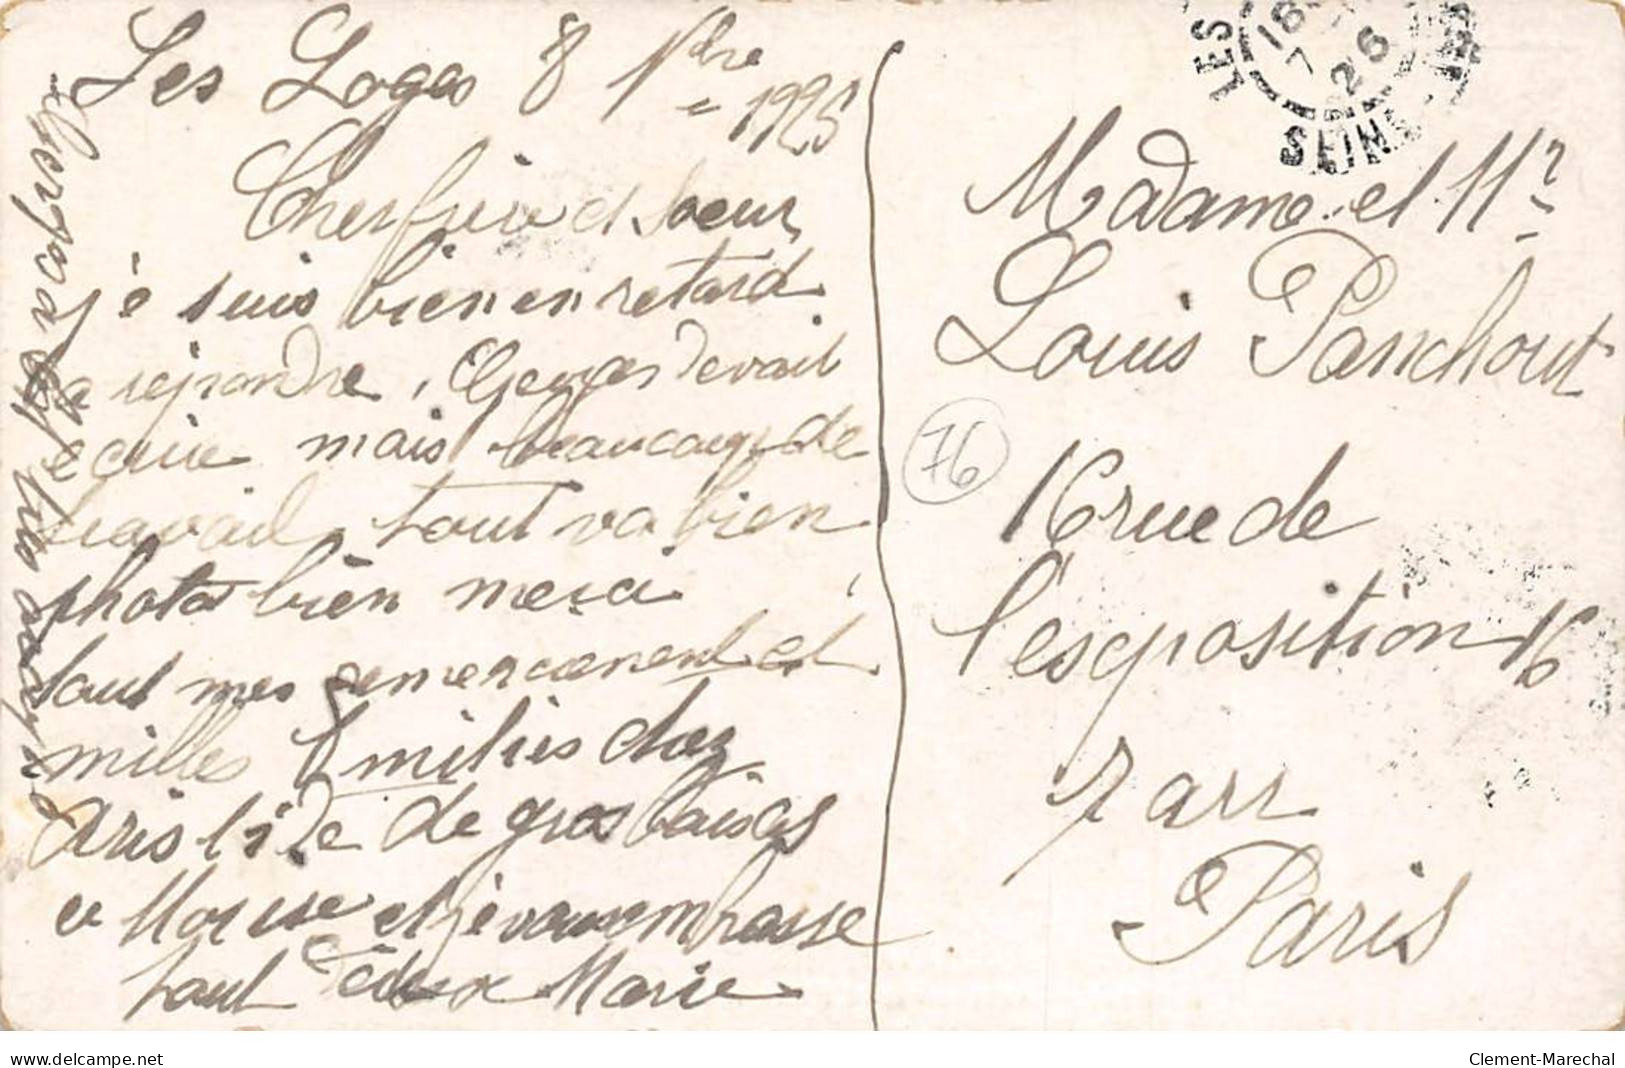 Les Loges 8 Nbre 1925
Cher frère et soeur
je suis bien en retard
a repondre, Georges devait
ecrire mais beaucoup de
travail, tout va bien
photos bien merci
tout mes remerciement et
milles amitiés chez
Aristide de gros baisers
a et je vous embrasse
tout deux Marie
Georges
LES
18
7
26
SEINE
Madame et Mr
Louis Panchout
16 rue de
l'exposition 16
7 arr
Paris
76
www.delcampe.net
Clement-Marechal